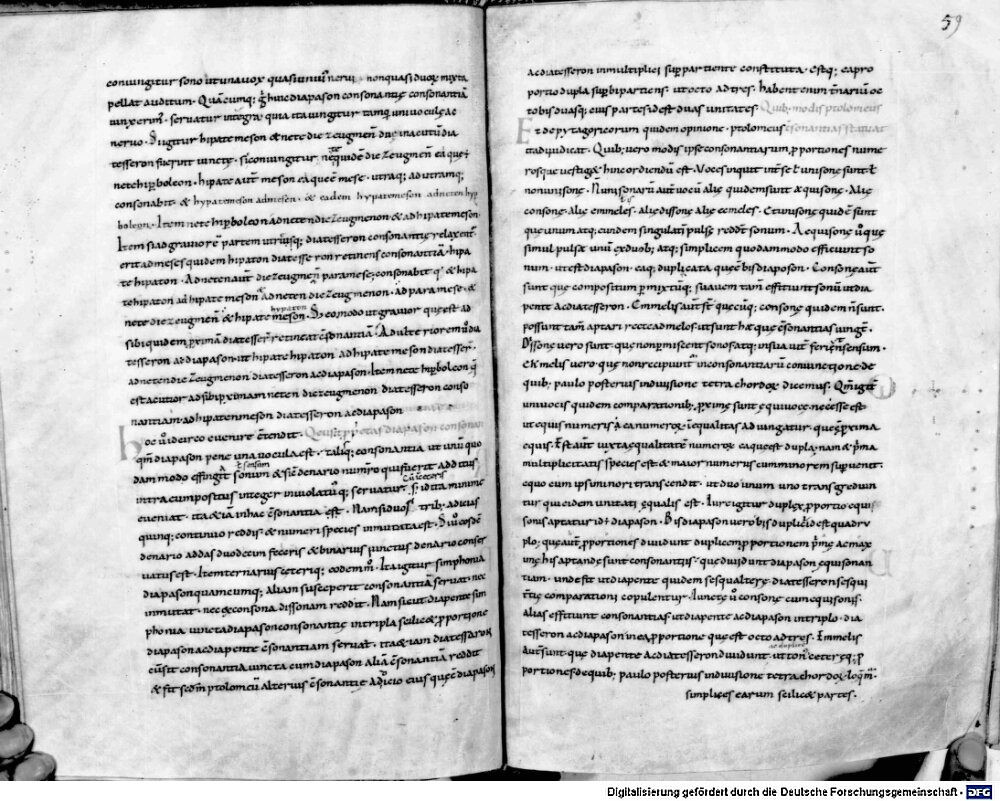 coniungitur sono ut una uox quasi unius nerui non quasi duoꝝ mixta
pellat auditum. Quacumq; g̃ huic diapason consonantię consonantia
iunxerim'. seruatur integra quia ita iungitur tamq̃ uni uoculę ac
neruo. Iugitur hipate meson & nete die zeugmen̄ duę in acutū dia
tesseron fuerint iunctę. si coniungitur
nete hip̱boleon. hipate aut̄ meson ea quę ē mese. utraq; ad utramq;
consonabit & hypate meson ad mesen. & eadem hypate meson ad neten hyp
boleon. Item nete hip̱boleon ad neten die zeugmenon & ad hipate meson.
Item si ad grauiorē partem utriusq; diatesseron consonantię relaxent̃
erit ad meses quidem hipaton diatesseron retinens consonantiā. hipa
te hipaton. Ad neten aut̄ die zeugmen̄ paramese; consonabit & hipa
te hipaton ad hipate meson & ad neten die zeugmenon. ad paramese. &
nete die zeugmen̄ & hipate meson. Eo modo ut grauior quę est ad
hypaton
sibi quidem p̱ximā diatesser̄ retineat c̄sonantiā. Ad ulteriorem u dia
tesseron ac diapason. ut hipate hipaton ad hipate meson diatesser̄.
ad neten die zeugmenon diatesseron ac diapason. Item nete hip̱boleon q̄
est acutior ad sibi p̱ximam neten die zeugmenon diatesseron conso
nantiam ad hipaten meson diatesseron ac diapason
hoc u idcirco euenire c̄tendit.
qm̄ diapason pene una uocula est. taliq; consonantia ut unū quo
t sensum
dam modo effingit sonum & sic̄ denario numero qui fuerit additus
Cū ceteris
intra cumpositus integer inuiolatusq; seruatur. id ita minime
eueniat. ita & iam in hac c̄sonantia est. Nam si duos trib; adicias
quinq; continuo reddis & numeri species inmutata est. Si u eosdē
denario addas duodecim feceris & binarius iunctus denario conser
uatus est. Item ternarius ceteriq; eodem m. Ita igitur simphonia
diapason quamcumq; aliam susceperit consonantiā seruat. nec
inmutat. nec ex consona dissonam reddit. Nam sicut diapente sim
phonia iuncta diapason consonantię in tripla scilic& p̱portione
diapason ac diapente c̄sonantiam seruat. ita & iam diatesseron
c̄sistit consonantia iuncta cum diapason aliā c̄sonantiā reddit
& fit scdm ptolomeū alterius c̄sonantię adicio eius quę ē diapason
59
ac diatesseron in multiplici sup̱partiente constituta. Estq; ea pro
portio dupla sup̱bipartiens. ut octo ad tres. habent enim t̄nariū oc
to bis duasq; eius partes id est duas unitates. Quib; modis ptolomeus
Et de pytagoricorum quidem opinione. ptolomeus c̄sonantias statuat
ita diiudicat. Quib; uero modis ipse consonantiarum p̱portiones nume
rosque uestig& hinc ordiendū est. Voces inquit int̄ se t unisonę sunt t
non unisonę. Non unisonarū aut̄ uocū alię quidem sunt equisonę. Alię
consonę. Alię emmeles. alię dissonę. Alię ecmeles. Et unisonę quidē sunt
que unum atq; eundem singulatī pulsę reddt̄ sonum. Aequisonę u quę
simul pulsę unū ex duob; atq; simplicem quodam modo efficiunt so
num. ut est diapason. eaq; duplicata quę ē bis diapason. Consonę aut̄
sunt que compositum p̱mixtūq; suauem tam̄ efficiunt sonū ut dia
pente ac diatesseron. Emmelis aut̄ st̄ quecūq; consonę quidem n̄ sunt.
possunt tam̄ aptari recte ad melos. ut sunt hę quę c̄sonantias iungt̄.
Dissonę uero sunt quę non p̱miscent sonos atq; insuauit̄ feriunt sensum.
Ekmelis uero que non recipiunt̄ in consonantiarū coniunctione de
quib; paulo posterius in diuisione tetrachordoꝝ dicemus. Qm̄ igit̄
univocis quidem comparationib; p̱ximę sunt equiuocę necesse est
ut equis numeris ea numeroꝝ inequalitas adiungatur quę ē p̱xima
equis. Est aut̄ iuxta equalitatē numeroꝝ ea que est dupla. nam & p̄ma
multiplicitatis species est. & maior numerus cum minorem sup̱uenit.
equo eum ipsi minori transcendit. ut duo unum uno transgrediun
tur qui eidem unitati equalis est. Iure igitur duplex p̱portio equi
sonis aptatur id ÷ diapason. Bis diapason uero bis duplici id est quadru
plo; quę aut̄ p̱portiones diuidunt duplicem p̱portionem p̄mę ac max
imę his aptandę sunt consonantiis. quę diuidunt diapason equisonan
tiam. unde fit ut diapente quidem sesqualterę diatesseron sesqui
t̄tię comparationi copulentur. Iunctę u consonę cum equisonis.
alias efficiunt consonantias ut diapente ac diapason in triplo. dia
tesseron ac diapason in ea p̱portione quę est octo ad tres. Emmelis
aut̄ sunt. quę diapente ac diatesseron diuidunt. ut ton' ceteręq; p̱
portiones de quib; paulo posterius in diuisione tetrachordoꝝ loqm̄.
simplices earum scilic& partes.
Digitalisierung gefördert durch die Deutsche Forschungsgemeinschaft - DFG